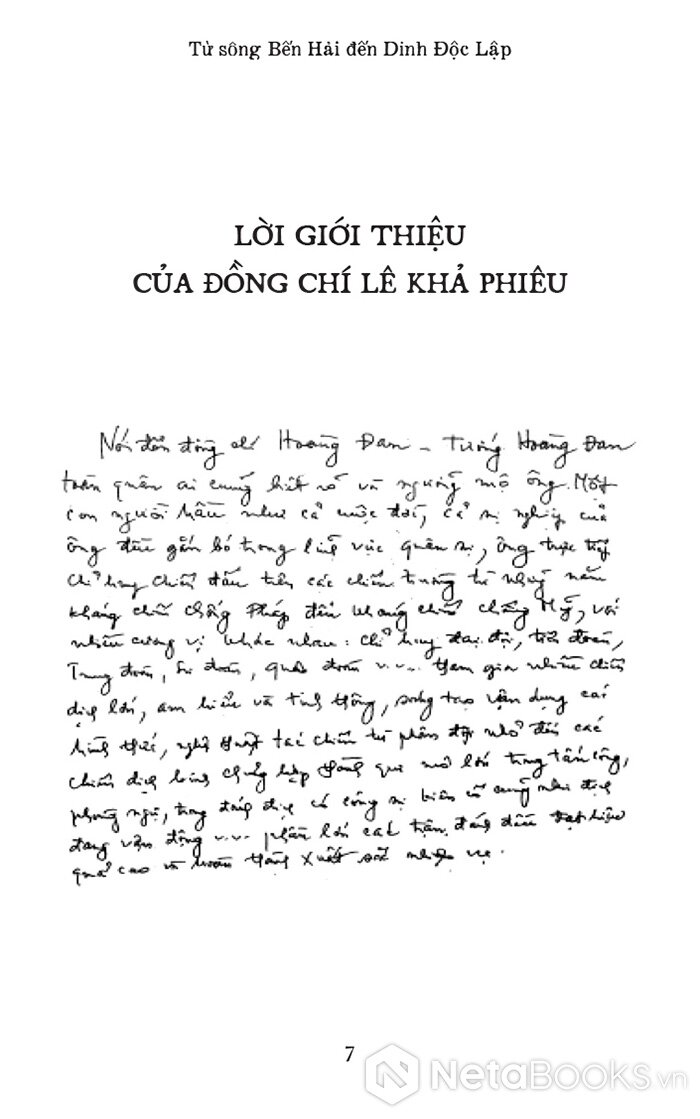 Từ sông Bến Hải đến Dinh Độc Lập
LỜI GIỚI THIỆU
CỦA ĐỒNG CHÍ LÊ KHẢ PHIÊU
Nói đến đồng chí Hoàng Đan - Tướng Hoàng Đan
toàn quân ai cũng biết rõ và ngưỡng mộ ông. Một
con người hầu như cả cuộc đời, cả sự nghiệp của
ông đều gắn bó trong lĩnh vực quân sự, ông trực tiếp
chỉ huy chiến đấu trên các chiến trường từ những năm
kháng chiến chống Pháp đến kháng chiến chống Mỹ, với
nhiều cương vị khác nhau: chỉ huy đại đội, tiểu đoàn,
Trung đoàn, Sư đoàn, Quân đoàn v.v... tham gia nhiều chiến
dịch lớn, am hiểu và tinh thông, sáng tạo vận dụng các
hình thức, nghệ thuật tác chiến từ phân đội nhỏ đến các
chiến dịch binh chủng hợp thành quy mô lớn trong tấn công,
phòng ngự, trong đánh địch có công sự kiên cố cũng như địch
đang vận động v.v... phần lớn các trận đánh đều đạt hiệu
quả cao và hoàn thành xuất sắc nhiệm vụ.
7
NetaBooks.vn